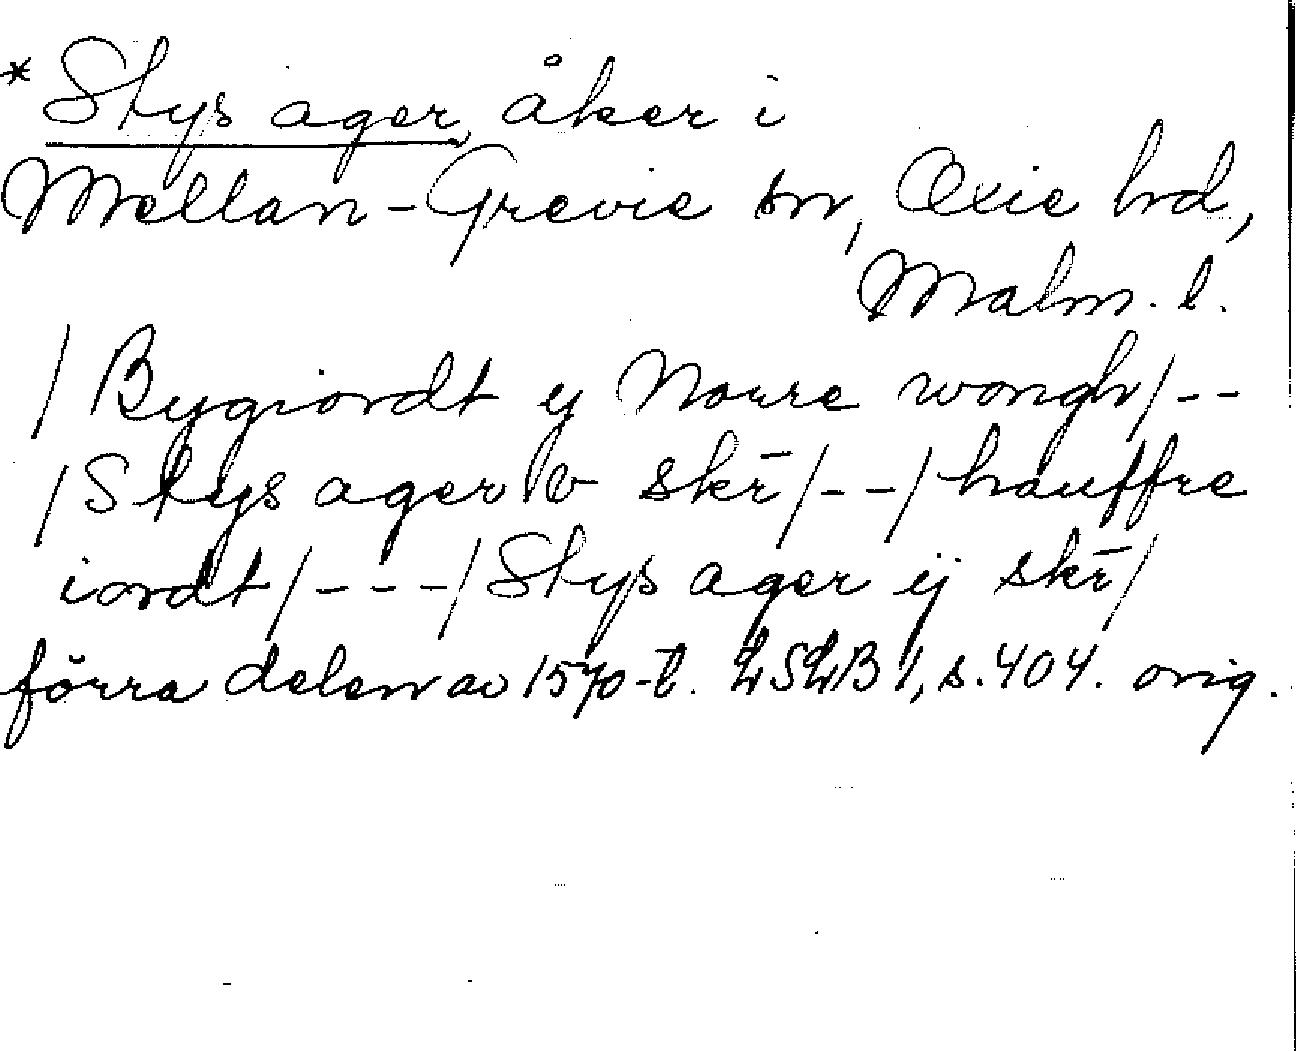 * Stys ager, åker i
Mellan-Grevie sn, Oxie hd,
Malm. l.
/Bygiordt ij Norre wongh/--
/Stys ager v skr̄/--/hauffre
iordt/---/Stys ager ij skr̄/
förra delen av 1570-t. LSLB 1, s. 404. orig.